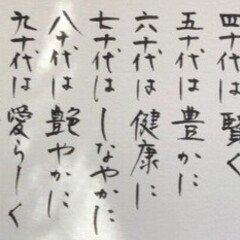 四十代は賢く
五十代は豊かに
六十代は健康に
七十代はしなやかに
八十代は艶やかに
九十代は愛らしく